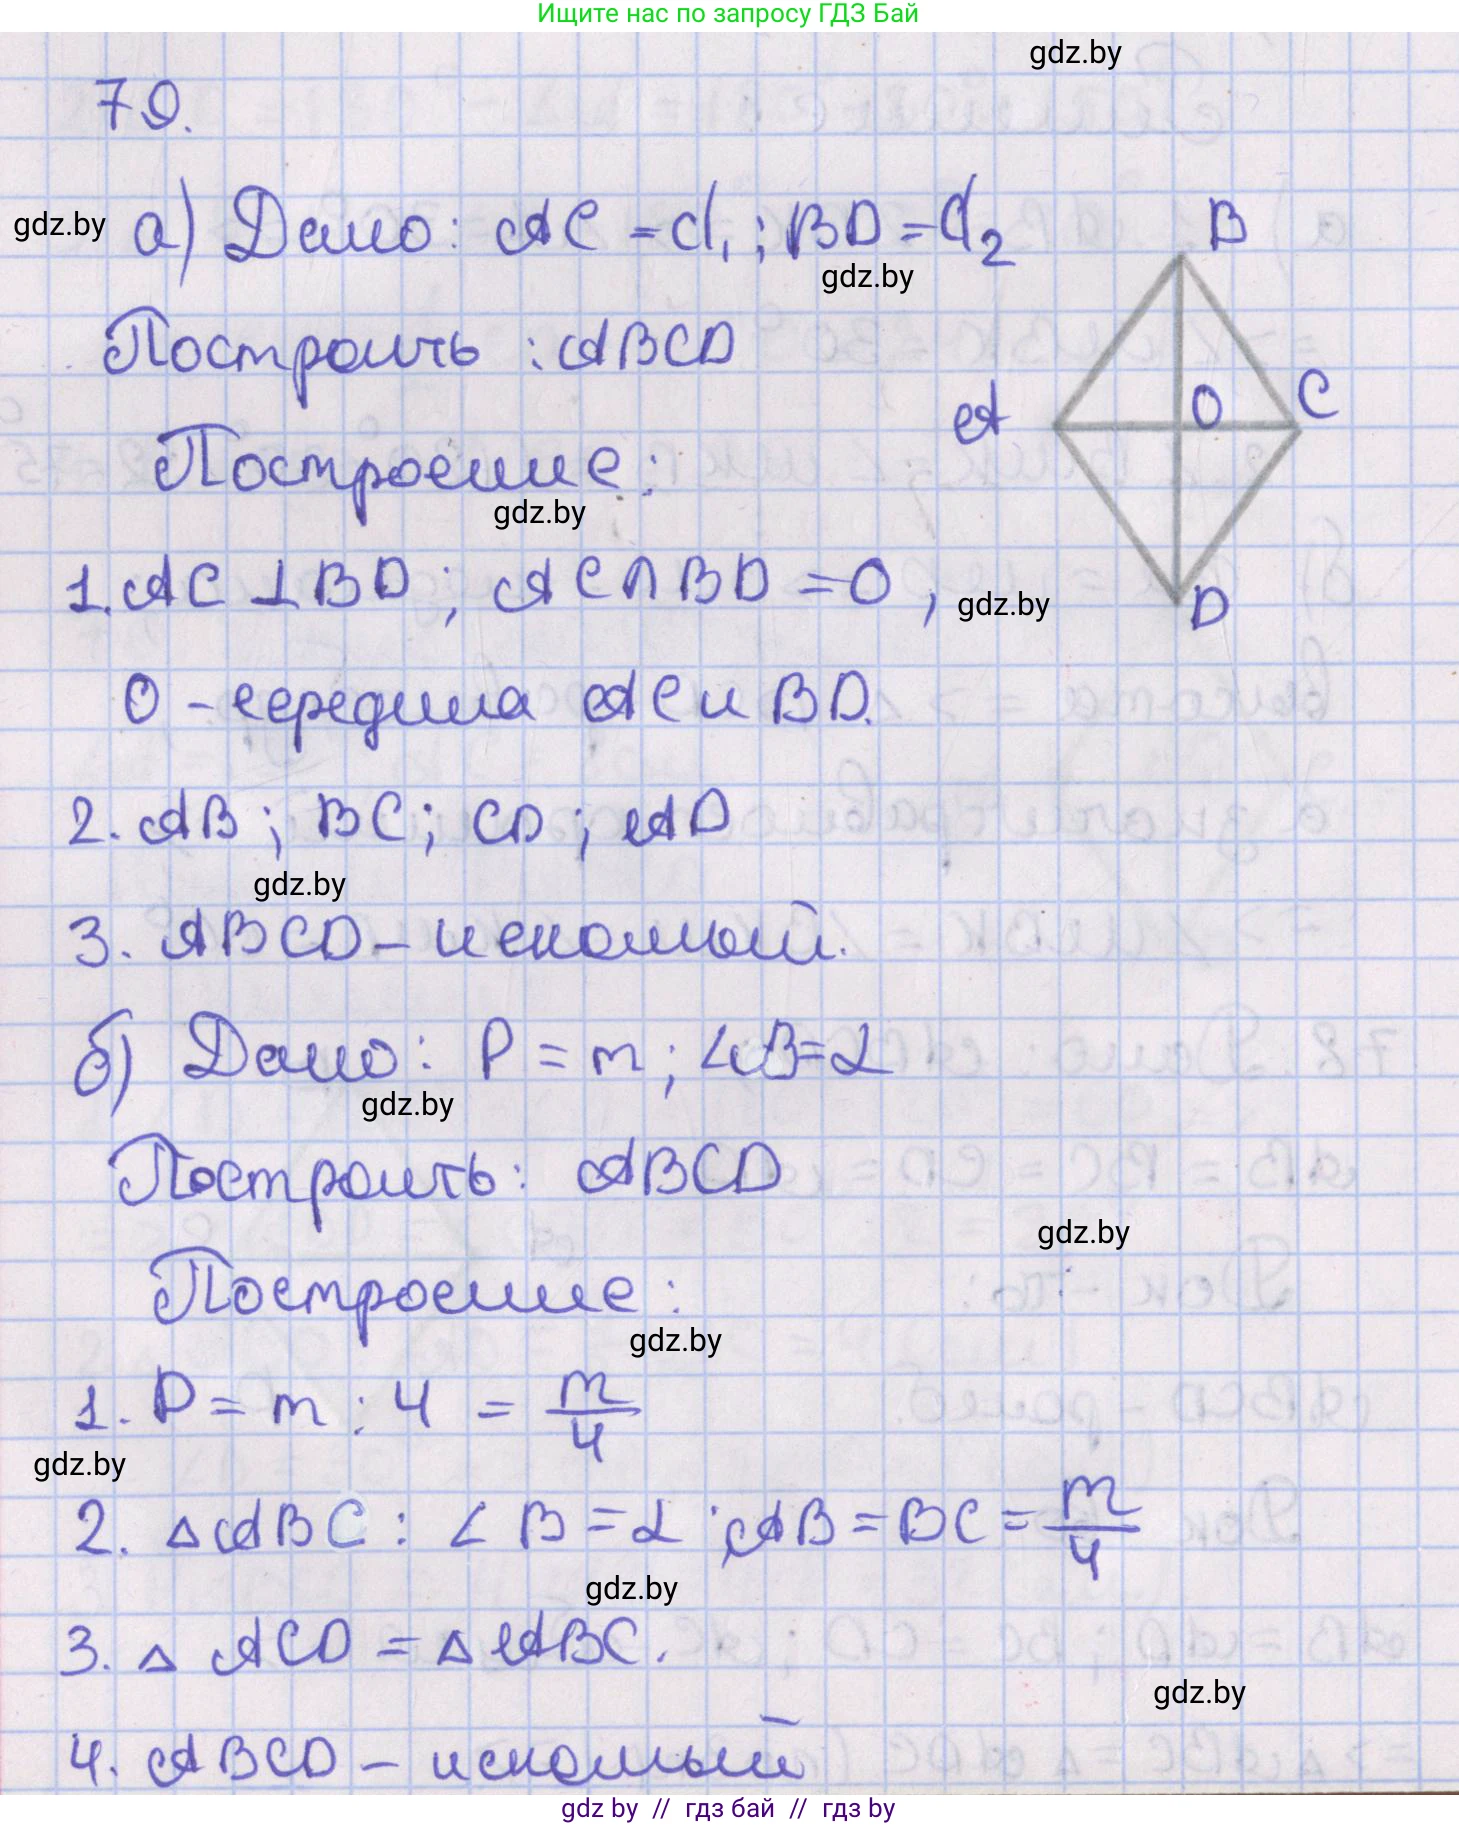 Ищите нас по запросу ГДЗ Бай
gdz.by
79.
gdz.by
а) Дано: AC = d₁; BD = d₂
B
gdz.by
Построить: ABCD
A
O
C
Построение:
gdz.by
1. AC ⊥ BD; AC ∩ BD = O,
gdz.by
D
O - середина AC и BD.
2. AB; BC; CD; AD
gdz.by
3. ABCD – искомый.
б) Дано: P = m; ∠B = α
gdz.by
Построить: ABCD
gdz.by
Построение:
gdz.by
1. P = m : 4 = m/4
gdz.by
2. △ABC: ∠B = α; AB = BC = m/4
gdz.by
3. △ ACD = △ ABC.
gdz.by
4. ABCD – искомый
gdz by // гдз бай // гдз by